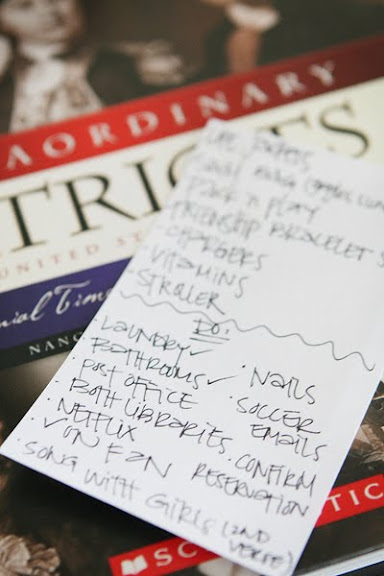 AORDINARY
TRIOTS
UNITED ST
nial Time
NANC
SC
TIC
PACK N PLAY
FRIENDSHIP BRACELETS
CHARGERS
VITAMINS
STROLLER
DO:
· LAUNDRY ✓
· BATHROOMS ✓
· POST OFFICE
· BOTH LIBRARIES
· NETFLIX
✓ ON
· SONG WITH GIRLS (2ND VERSE)
· NAILS
· SOCCER EMAILS
· CONFIRM RESERVATION